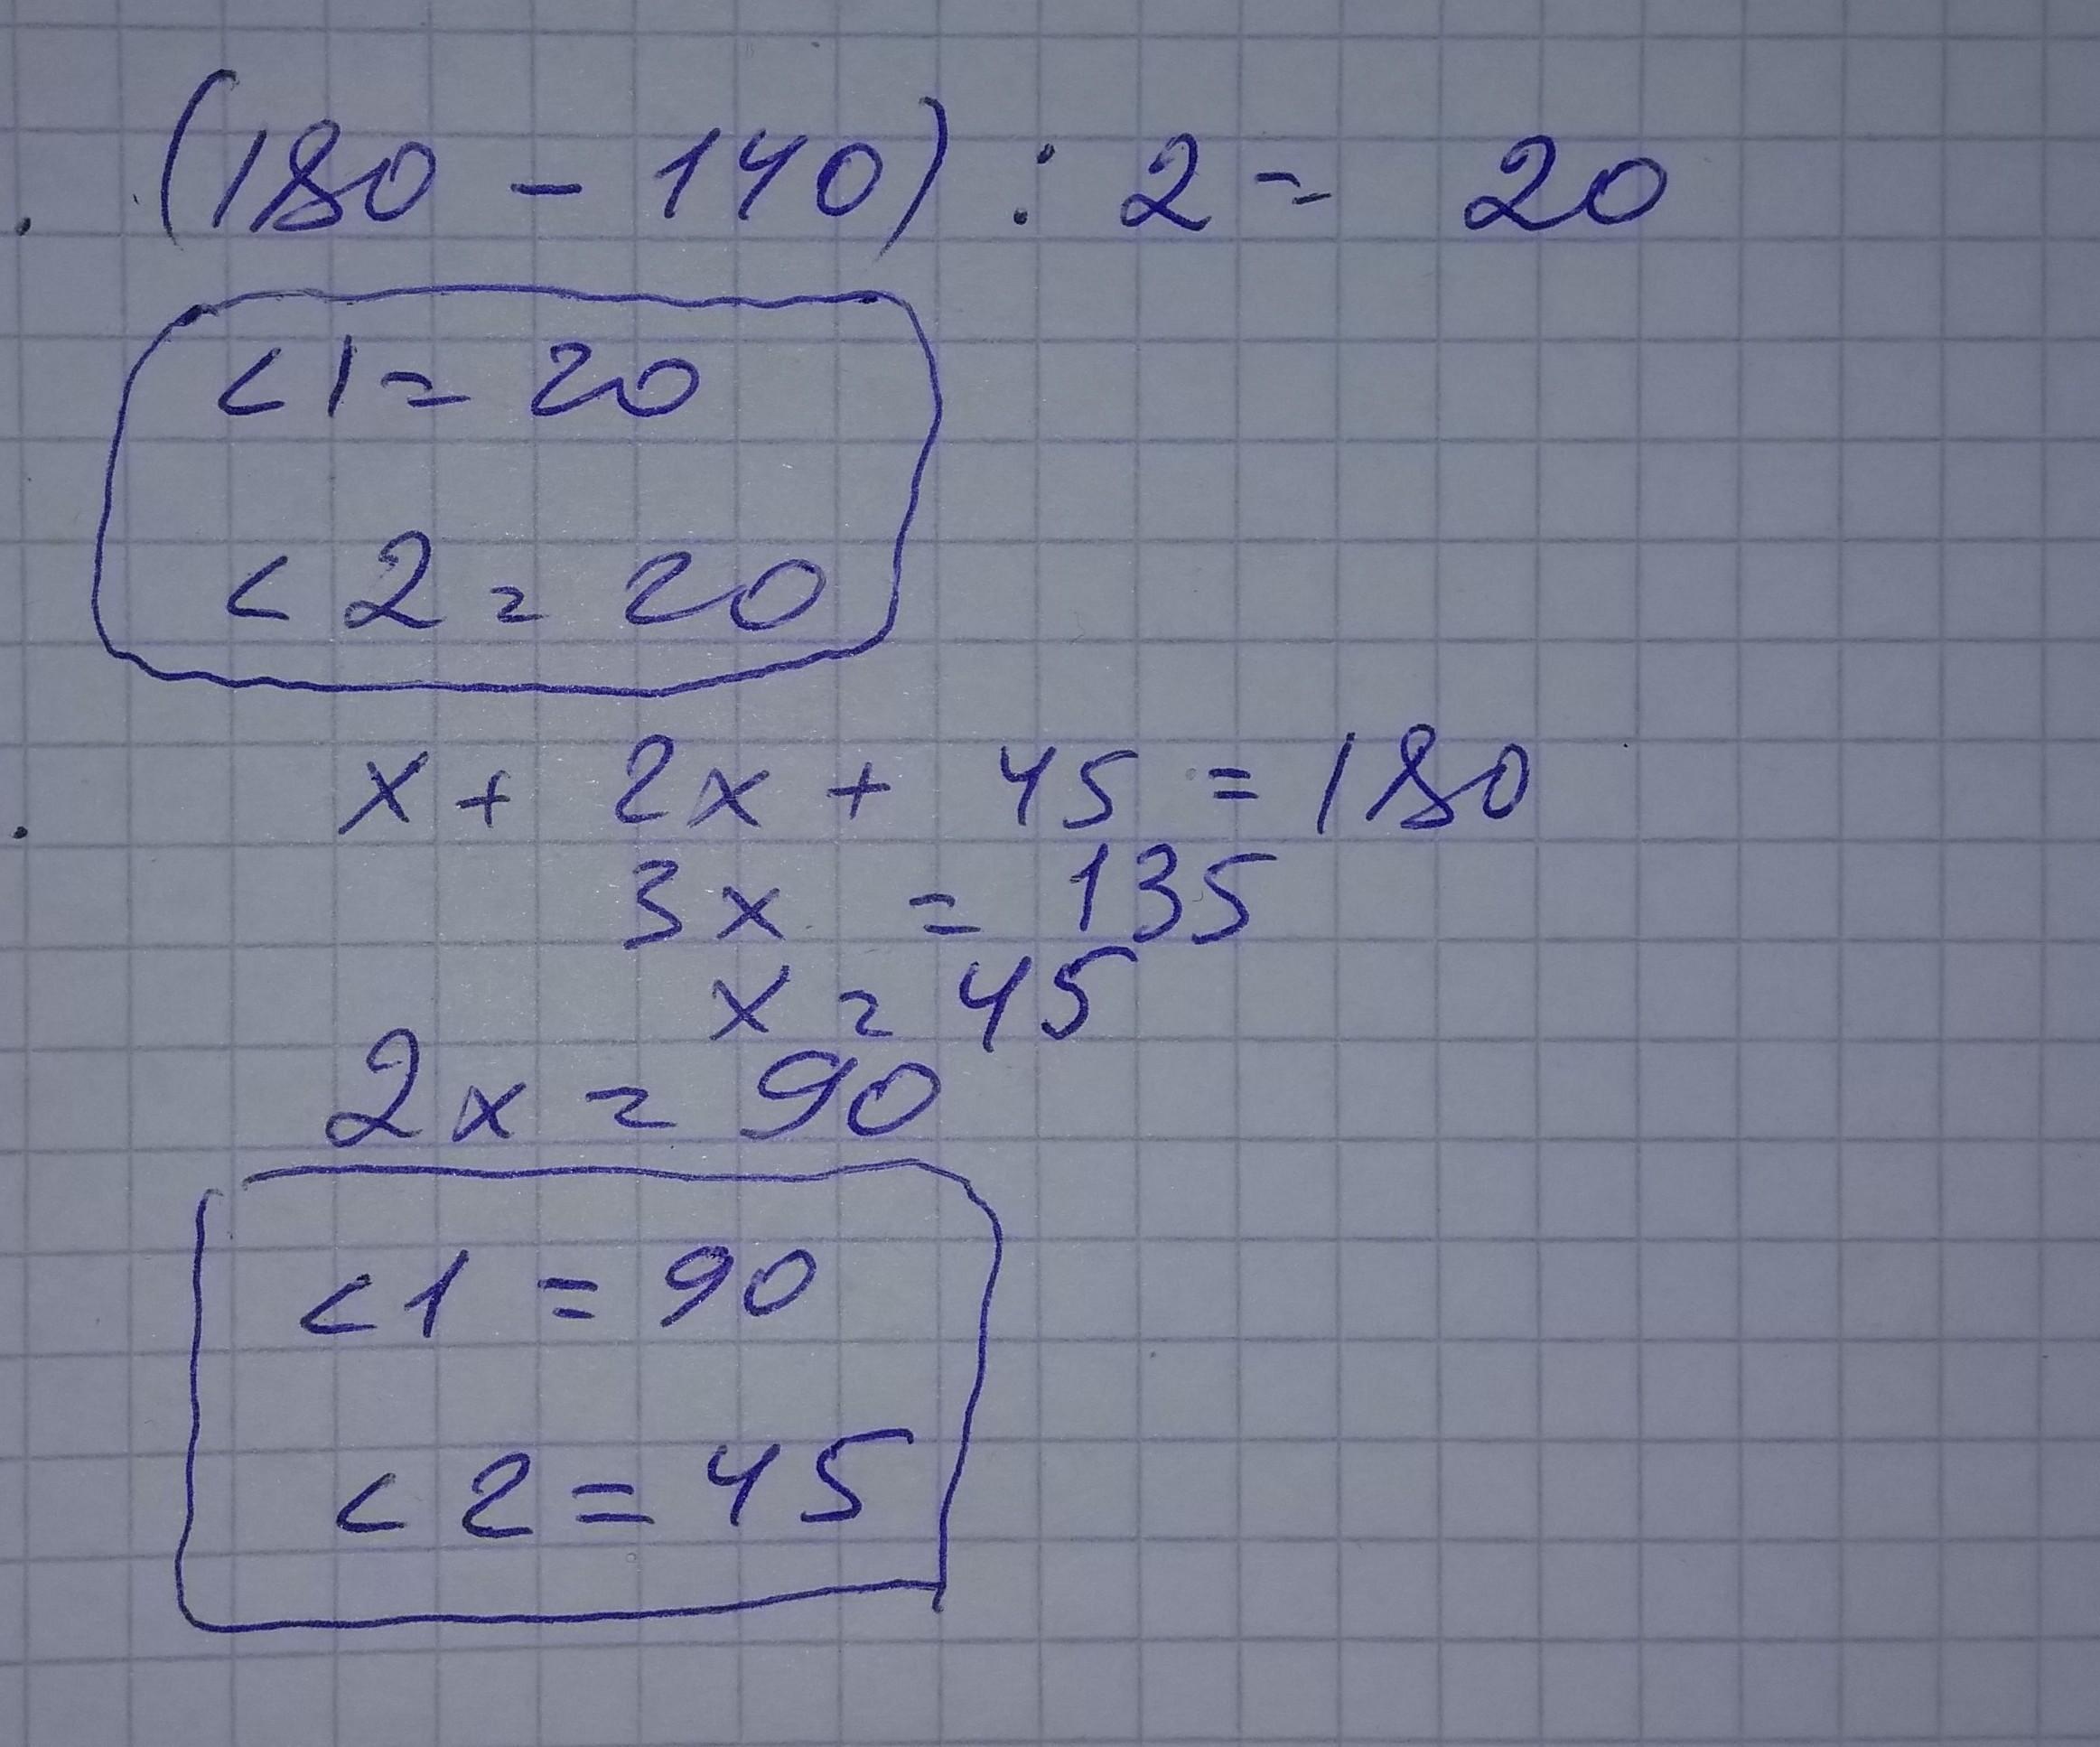 (180 - 140) : 2 = 20
<1 = 20
<2 = 20
x + 2x + 45 = 180
3x = 135
x = 45
2x = 90
<1 = 90
<2 = 45